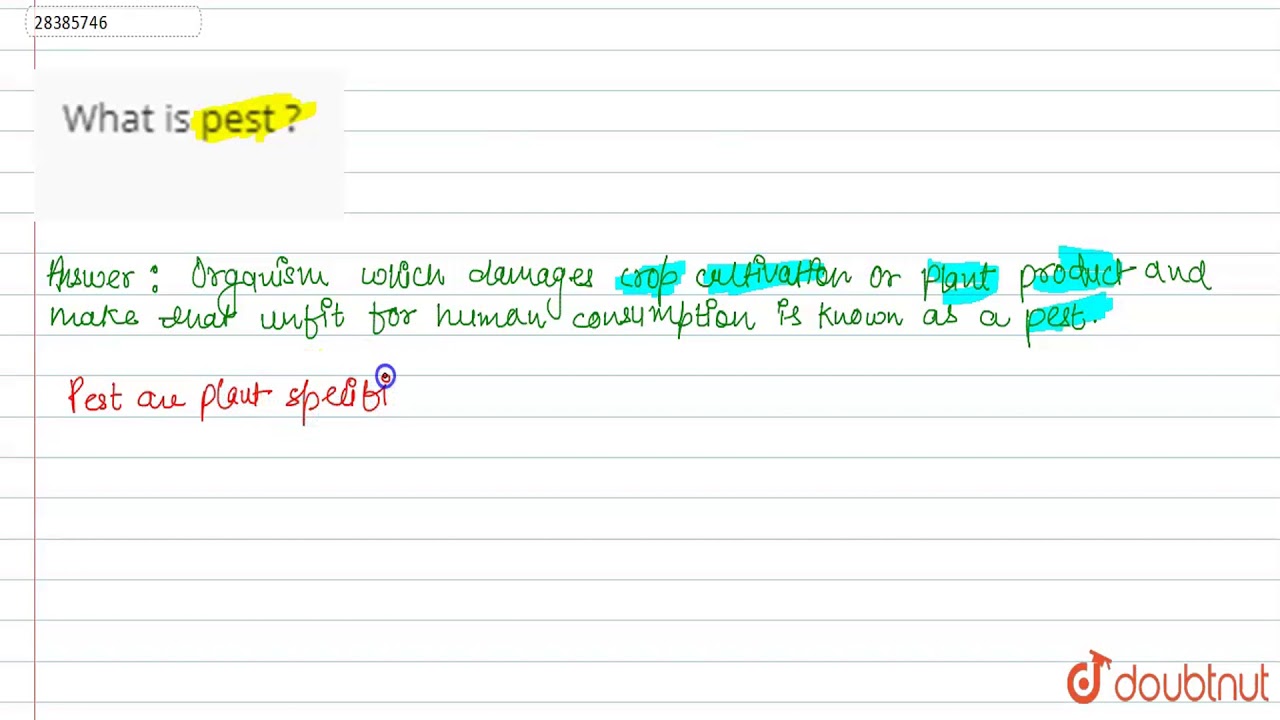 28385746
What is pest ?
Answer : Organism which damages crop cultivation or plant product and
make that unfit for human consumption is known as a pest.
Pest are plant specifi
doubtnut